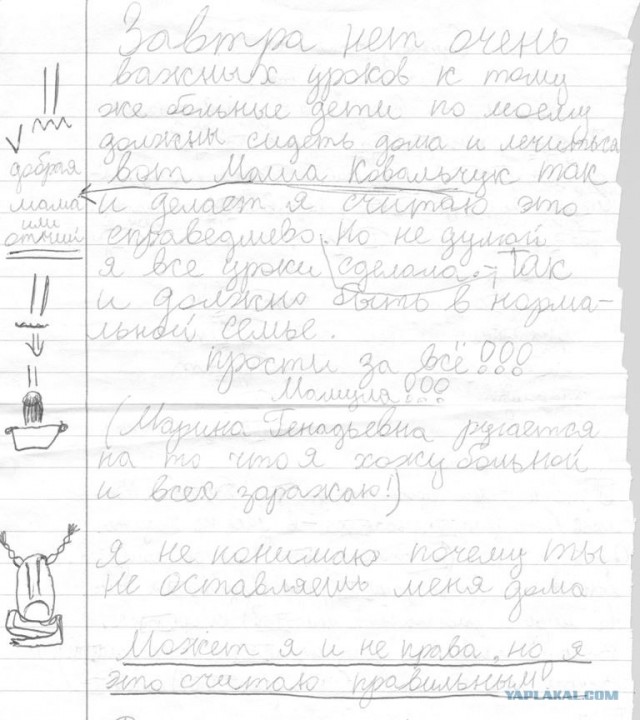 Завтра нет очень
важных уроков к тому
же больные дети по моему
должны сидеть дома и лечиться
вот Маша Ковальчук так
и делает я считаю это
справедливо. Но не думай
я все уроки сделала. Так
и должно быть в норма-
льной семье.
прости за всё!!!
Мамула!!!
(Марина Генадьевна ругается
на то что я хожу больной
и всех заражаю!)
я не понимаю почему ты
не оставляешь меня дома
Может я и не права, но я
это считаю правильным!
добрая
мама
или
отчий
YAPLAKAL.COM